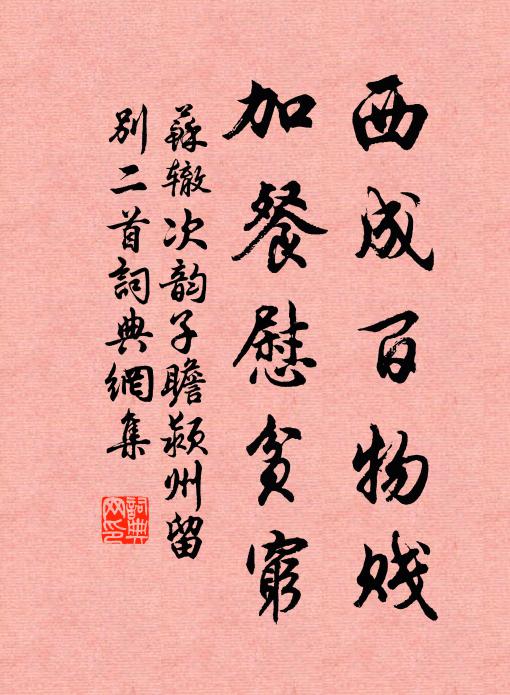 西成百物贱
加餐慰贫窮
蘇辙次韵子瞻颍州留
别二首詞典網集
詞典
网印